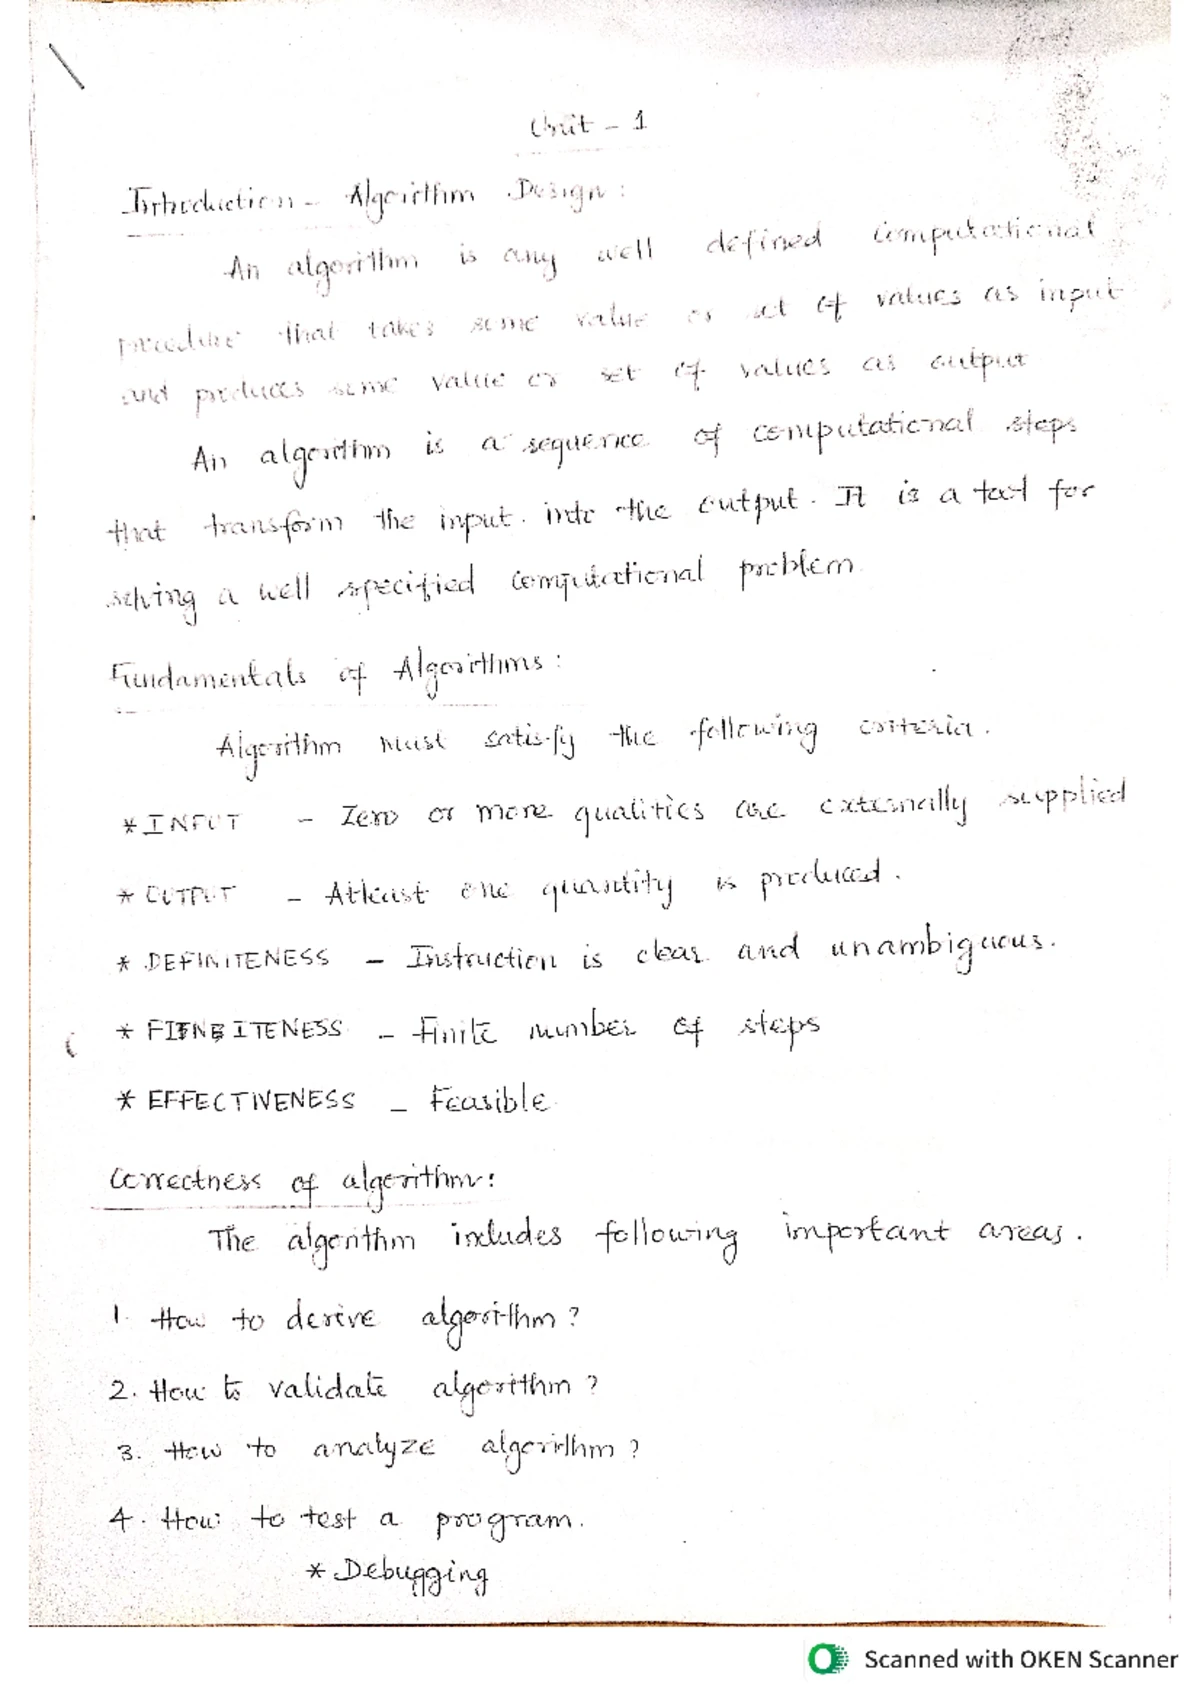 Unit - 1
Introduction - Algorithm Design :
An algorithm is any well defined computational
procedure that takes some value or set of values as input
and produces some value or set of values as output
An algorithm is a sequence of computational steps
that transform the input into the output. It is a tool for
solving a well specified computational problem
Fundamentals of Algorithms :
Algorithm must satisfy the following criteria.
* INPUT - Zero or more qualitics are externally supplied
* OUTPUT - Atleast one quantity is produced.
* DEFINITENESS - Instruction is clear and unambiguous.
* - Finite number of steps
* EFFECTIVENESS - Feasible
Correctness of algorithm :
The algorithm includes following important areas.
1. How to derive algorithm ?
2. How to validate algorithm ?
3. How to analyze algorithm ?
4. How to test a program.
* Debugging
Scanned with OKEN Scanner